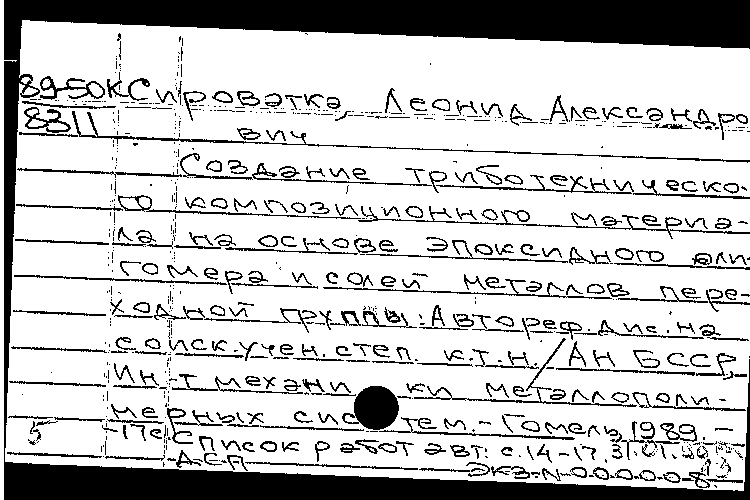 89-50К Сироватка, Леонид Александро
8311 вич
Создание триботехническо-
го композиционного материа-
ла на основе эпоксидного оли
гомера и солей металлов пере-
ходной группы: Автореф. дис. на
соиск. учен. степ. к.т.н. / АН БССР,
Ин-т механи ки металлополи-
мерных сис тем. - Гомель, 1989. -
5 -17с Список работ авт: с.14-17. 31.01.
ЭКЗ-N-00000-8